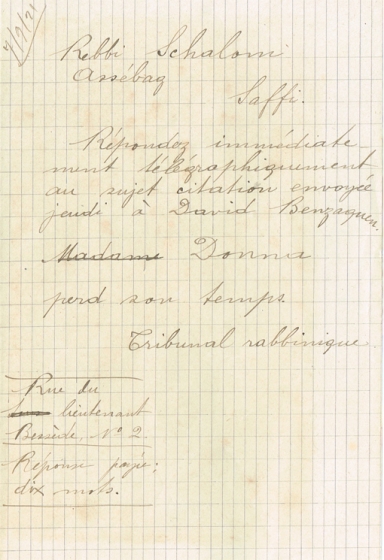 7/9/21
Rebbi Schalom
Assébag
Saffi.
Répondez immédiate
ment télégraphiquement
au sujet citation envoyée
jeudi à David Benzaquen.
Madame Donna
perd son temps.
Tribunal rabbinique
Rue du
lieutenant
Bessède, No 2.
Réponse payée:
dix mots.